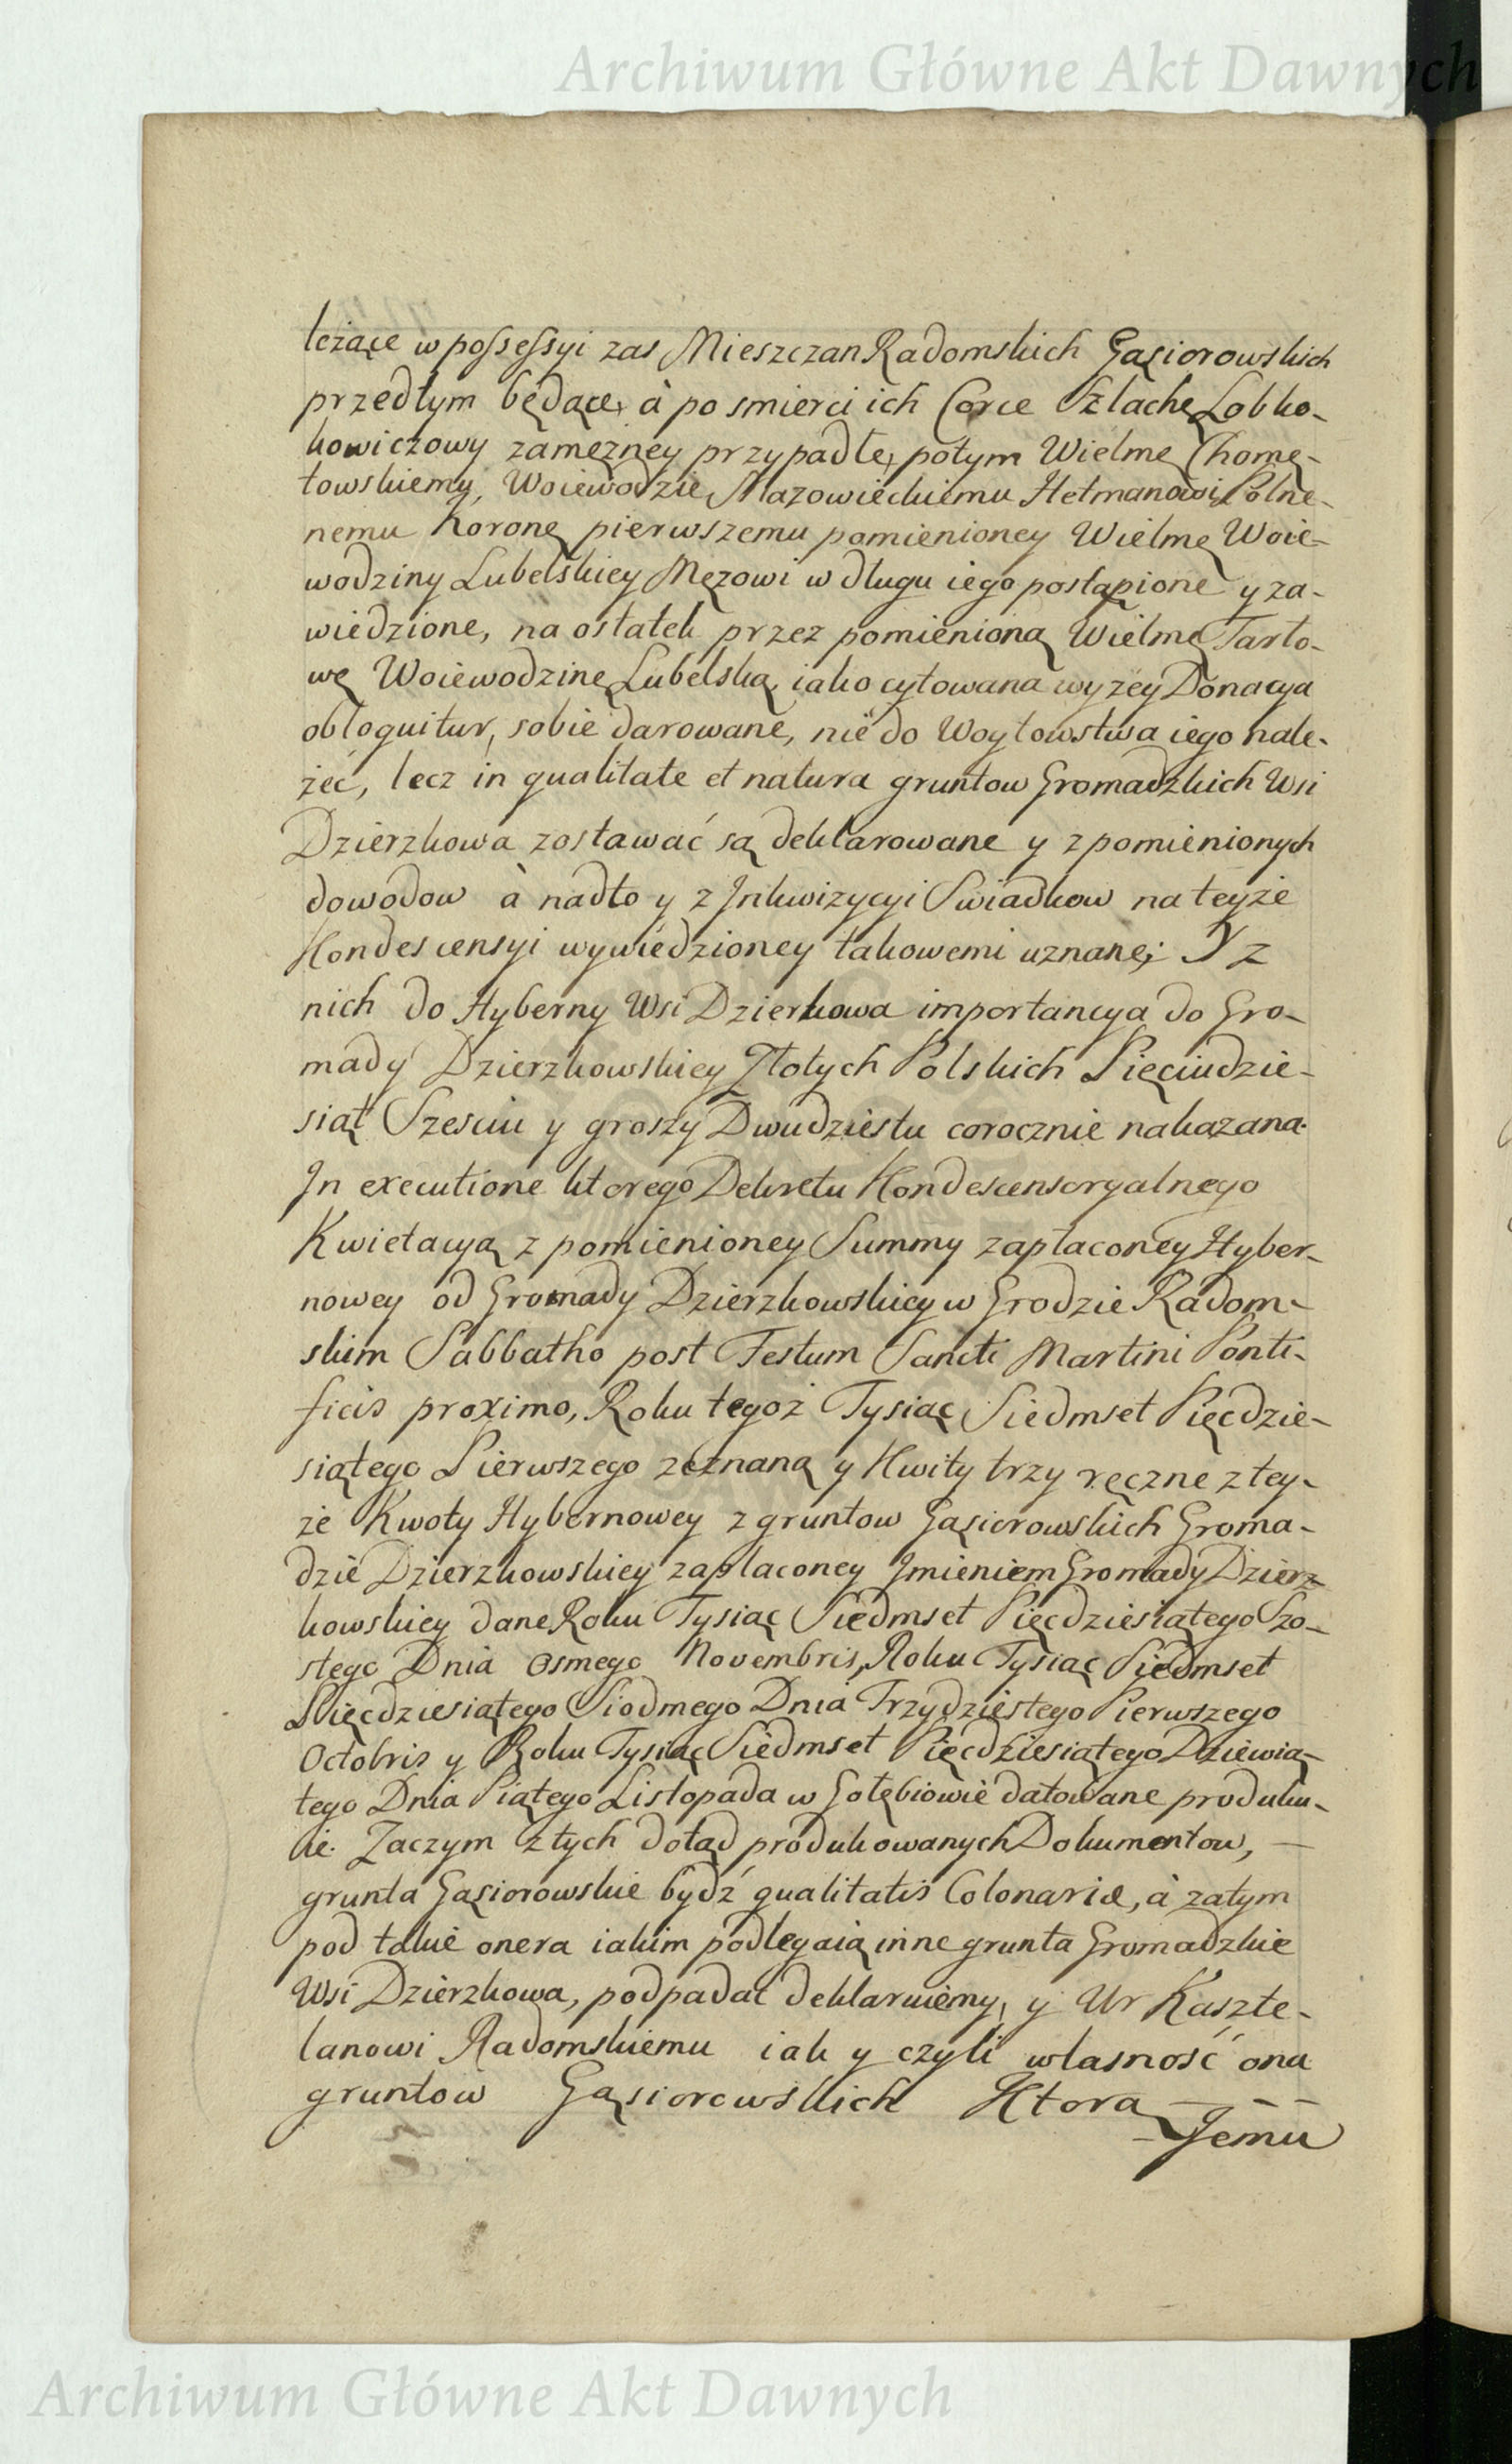 Archiwum Główne Akt Dawnych
leżące w possessyi zas Mieszczan Radomskich Gąsiorowskich
przedtym będące, à po smierci ich Corce Szlache Lobko-
kowiczowy zamężney przypadłe, potym Wielmę Chomę-
towskiemu, Woiewodzie Mazowieckiemu Hetmanowi Polne-
nemu Koronę pierwszemu pomienioney Wielmę Woie-
wodziny Lubelskiey Mężowi w długu iego postąpione y za-
wiedzione, na ostatek przez pomienioną Wielmę Tarło-
wę Woiewodzinę Lubelską, iako cytowana wyżey Donacya
obloquitur, sobie darowane, nie do Woytowstwa iego nale-
żeć, lecz in qualitate et natura gruntow Gromadzkich Wsi
Dzierzkowa zostawać są deklarowane y z pomienionych
dowodow à nadto y z Inkwizycyi Swiadkow na teyże
Kondescensyi wywiedzioney takowemi uznane; Y z
nich do Hyberny Wsi Dzierkowa importancya do Gro-
mady Dzierzkowskiey Złotych Polskich Pięciudzie-
siąt Szesciu y groszy Dwudziestu corocznie nakazana.
In executione ktorego Dekretu Kondescensoryalnego
Kwietacyą z pomienioney Summy zapłaconey Hyber-
nowey od Gromady Dzierzkowskiey w Grodzie Radom-
skim Sabbatho post Festum Sancti Martini Ponti-
ficis proximo, Roku tegoż Tysiąc Siedmset Pięcdzie-
siątego Pierwszego zeznaną y Kwity trzy ręczne z tey-
że Kwoty Hybernowey z gruntow Gąsiorowskich Groma-
dzie Dzierzkowskiey zapłaconey Imieniem Gromady Dzierz
kowskiey dane Roku Tysiąc Siedmset Pięcdziesiątego Szo-
stego Dnia Osmego Novembris, Roku Tysiąc Siedmset
Pięcdziesiątego Siodmego Dnia Trzydziestego Pierwszego
Octobris y Roku Tysiąc Siedmset Pięcdziesiątego Dziewią-
tego Dnia Piątego Listopada w Gołębiowie datowane produku-
ie. Zaczym z tych dotąd produkowanych Dokumentow, —
grunta Gąsiorowskie bydź qualitatis Colonariæ, à zatym
pod takie onera iakim podlegaią inne grunta Gromadzkie
Wsi Dzierzkowa, podpadać deklaruiemy, y Ur Kaszte-
lanowi Radomskiemu iak y czyli własność ona
gruntow Gąsiorowskich Ktora — — —
— Jemu
Archiwum Główne Akt Dawnych